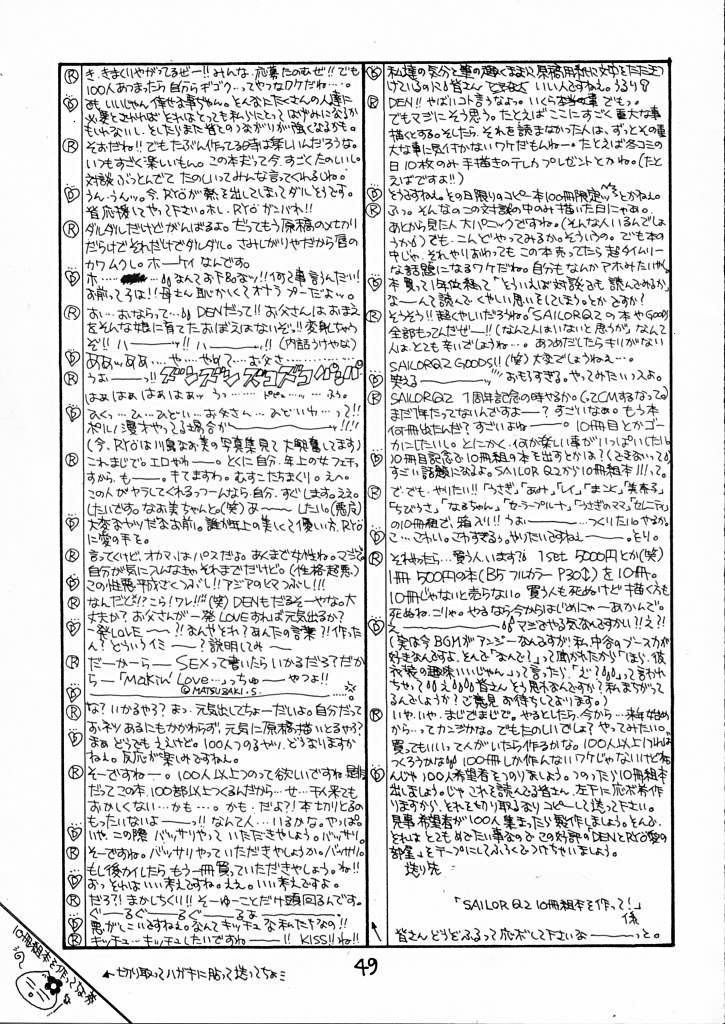 Ⓡ き、きまくりやがってるぜー!!みんな、応募たのむぜ!!でも
100人あつまったら自分らギゴク…ってやつなワケだね…。
Ⓓ いいじゃん 倖せな事ぢゃん。とんなにたくさんの人達に
必要とされれば それはとっても私らにとってはげみになるか
もしれないし、としたらまた皆とのつながりが強くなるかも。
Ⓡ そおだね!!でもたぶん作ってる時は楽しいんだろうな。
いつもすごく楽しいもん。この本だって今、すごくたのしいし。
対談ぶっとんでて たのしいってみんな言ってくれるしね。
Ⓓ うん、うんッ。今、RYÖが熱を出してしまってダルそうです。
皆応援してやって下さい。ホレ、RYÖガンバレ!!
Ⓡ ダルダルだけどがんばるよ。だってもう原稿のメ切り
だらけでそれだけでダルダル。さみしがりやだから唇の
カワムクし。ホーケイなんです。
Ⓓ ホ… なんてお下品なッ!!何て事言うんだい!
お前ってコは!!母さん恥かしくてオナラプーだよッ。
Ⓡ おい…おならって…。DENだって!!お父さんはおまえ
をそんな娘に育ておぼえはないぞッ!!変身しちゃう
ぞ!!ハ———ッ!!ハ———ッ!!(内話うけやな)
Ⓓ ああッああ……や……やめて…お父さ————ん
Ⓡ うおー——っ!! ズンズンズコズコパンパン
はぁはぁはぁはぁはぁッ うっ……………ふう。
Ⓓ ひくっ…ひ…ひどい…お父さん…ひどいわ…って!!
ポルノ漫才やってる場合か————ッ!!!!
(今、RYÖは川奥なお美の写真集見て大興奮してます)
Ⓡ これまじで。エロやわー。とくに自分、年上の女フェチ
すから。もー。キてますわ。むすこだちまくり。えへ。
この人がヤラしてくれるっつーんなら、自分、すぐします。ええ。
したいです。なお美ちゃんと。(笑)あ〜——したい。(悪魔)
Ⓓ 大変なヤツだなぁお前。誰か年上の美しくて優しい方、RYÖ
に愛の手を。
Ⓡ 言ってくけど、オカマはパスだよ。あくまで女性ね。マジで。
自分が気に入んなきゃそれまでだけど。(性格超悪)
Ⓓ この性悪平成ざくつぶし!!アジアのヒマつぶし!!!
Ⓡ なんだと!?こら!ワレ!!(笑)DENもだるそーやな。大
丈夫か?お父さんが一発LOVEすれば元気出るか?
Ⓓ 一発LOVE〜——!?なんやそれ?あんたの言葉?!作った
ん?どういうイミ〜——?説明してみ——
Ⓡ だーかーらー SEXって書いたらいかるだろ?だか
ら—「Makin' Love…っちゅ———やつよ!!
©MATSUZAKI.S.
Ⓓ
Ⓡ な?いかるやろ?まっ、元気出してちょーだいよ。自分だって
お、ネツあるにもかかわらず、元気に原稿描いとるやろ?
Ⓓ まぁ どうでもええけど。100人つのるやつ、どうなりますか
ねぇ。反応が楽しみですねん。
Ⓡ そーですねー。100人以上つのって欲しいですね、是非
だってこの本、100部以上つくるんだから…せ…千人来ても
おかしくない…かも—。かも…だよ?!本切りとるの
もったいないよーっ!!なんて人…いるかな。やっぱ。
Ⓓ いや、この際 バッサリやって いただきやしょう。バッサリ。
Ⓡ そーですね。バッサリやっていただきやしょうか。バッサリ。
もし後かイしたら もう一冊買っていただきやしょう。ね!!
Ⓓ おっそれはいい考えですね。ええ。いい考えですよ。
Ⓡ だろ?!まかしちくり!!そーゆーことだけ頭回るんです。
ぐ—〜るぐ——るぐ——るぁ—————
Ⓓ 悪がしこいですねぇ。なんてキッチュな私たちなの!!
Ⓡ キッチュ…キッチュしたいですね——!!KISS!!ね!!
Ⓓ 私達の気分と筆の趣くままに原稿用紙に文字をただ立
けているのに皆さん いいんですねぇ。うるうる
Ⓡ DEN!!やばいコト言うなよっ。いくら本当の事でもっ。
でもマジにそう思う。たとえばここにすごく重大な事
描くとする。そしたら、それを読まなかった人は、ずっとその重
大な事に気付かないワケだもんねー。たとえば冬コミの
日10枚のみ手描きのテレカプレゼントとかね。(たと
えばですよ!!)
Ⓓ そうですねぇ。その日限りのコピー本100冊限定ッとかねん。
Ⓡ ふっ。そんなのこの対談の中のみ描いた日にゃぁ。
あとから見た人大パニックですね。(そんな人いるんでしょ
うか)でも、こんどやってみるか。そういうの。でも本の
中じゃ、それやりおわっても この本売ってたら超タイムリー
な話題になるワケだねぇ。自分もなんかアホみたいやん。
Ⓓ 本買って1年位経って「そういえば対談でも読んでみるか」
なーんて読んでくやしい思いをしてしまう。とかですか?
Ⓡ そうそう!!超くやしいだろね。「SAILOR Q2の本やGoods
全部もってんだぜ——!!(なんて人はいないと思うが)なんて
人は、とても辛いでしょうね…。あつめだしたらキリがない
SAILOR Q2 GOODS!!(笑)大変でしょうねぇ…。
Ⓓ 笑える————————おもろすぎる。やってみたいっスよ。
Ⓡ SAILOR Q2 1周年記念の時やるか。(G2CMするなって)
まだ1年たってないんですよー?すごいなぁ。もう本
何冊出たんだ?すごいよねー——。10冊目とかゴー
カにしたいし。とにかく、何か楽しい事がいっぱいしたいし。
Ⓓ 10冊目記念で10冊組の本を出すとかは?(できないって)
すごい話題になるよ。SAILOR Q2から10冊組本!!!って。
Ⓡ で・でも・やりたい!!「うさぎ」「あみ」「レイ」「まこと」「美奈子」
「ちびうさ」「なるちゃん」「セーラープルート」「うさぎのママ」「セレニティ」
の10冊組で、箱入り!!うおー———…つくりたい。やるか。
Ⓓ こ…こわい。こわすぎるっ。やりたいですねぇー。とり。
Ⓡ それやったら…買う人います?1set 5000円とか(笑)
1冊500円の本(B5フルカラーP30↕)を10冊。
10冊じゃないと売らない。買う人も死ぬけど描くうも
死ぬね。こりゃ。やるなら今からはじめにゃーあかんで。
Ⓓ え———————マジでやる気なんですかい?!え?!
(実は今BGMがアンジーなんですが、私、中谷のブースカが
好きなんですよ。そんで「なんで?」って聞かれたから「ほら、彼
衣装の趣味いいじゃん」って言ったら、「ど?」って言われ
ちゃって え皆さんそう思わなんですか?私まちがって
るんでしょうか?ご意見お待ちしております。)
Ⓡ いや、いや。まじでまじで。やるとしたら、今から…来年始め
から…ってカンジかな。でもたのしいでしょ?やってみたいっ。
買ってもいいって人がいたら作るかな。100人以上いれば
つくろうかな。100冊しか作んないワケじゃないけどね
Ⓓ んじゃ100人希望者をつのりましょう。つのったら10冊組本
出しましょう。じゃこれを読んでる皆さん、左下に応ボ希作
りますから、それを切り取るなりコピーして送って下さい。
見事希望者が100人集まったら製作しましょう。そんで
それはとてもめでたい事なのでこの対談の「DENとRYÖ愛の
部屋」をテープにしてふろくでつけちゃいましょう。
送り先
「SAILOR Q2 10冊組本を作って!」
係
皆さんどうどふるって応ボして下さいな———っと。
10冊組本を作ってな希
←切り取ってハガキに貼って送ってちょ
49